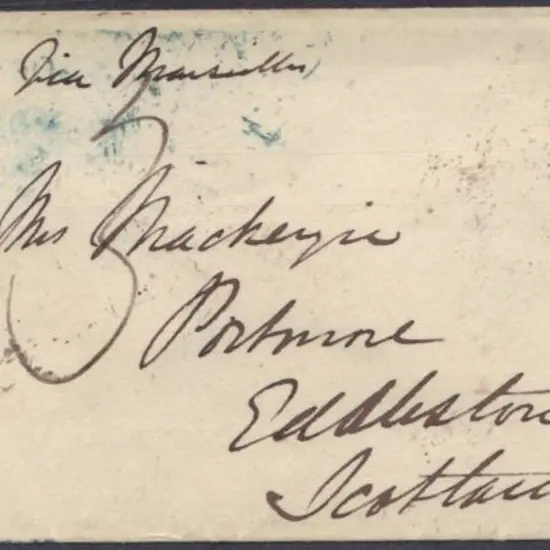 Via Marseilles
3
Mrs Mackenzie
Portmore
Eddleston
Scotlan